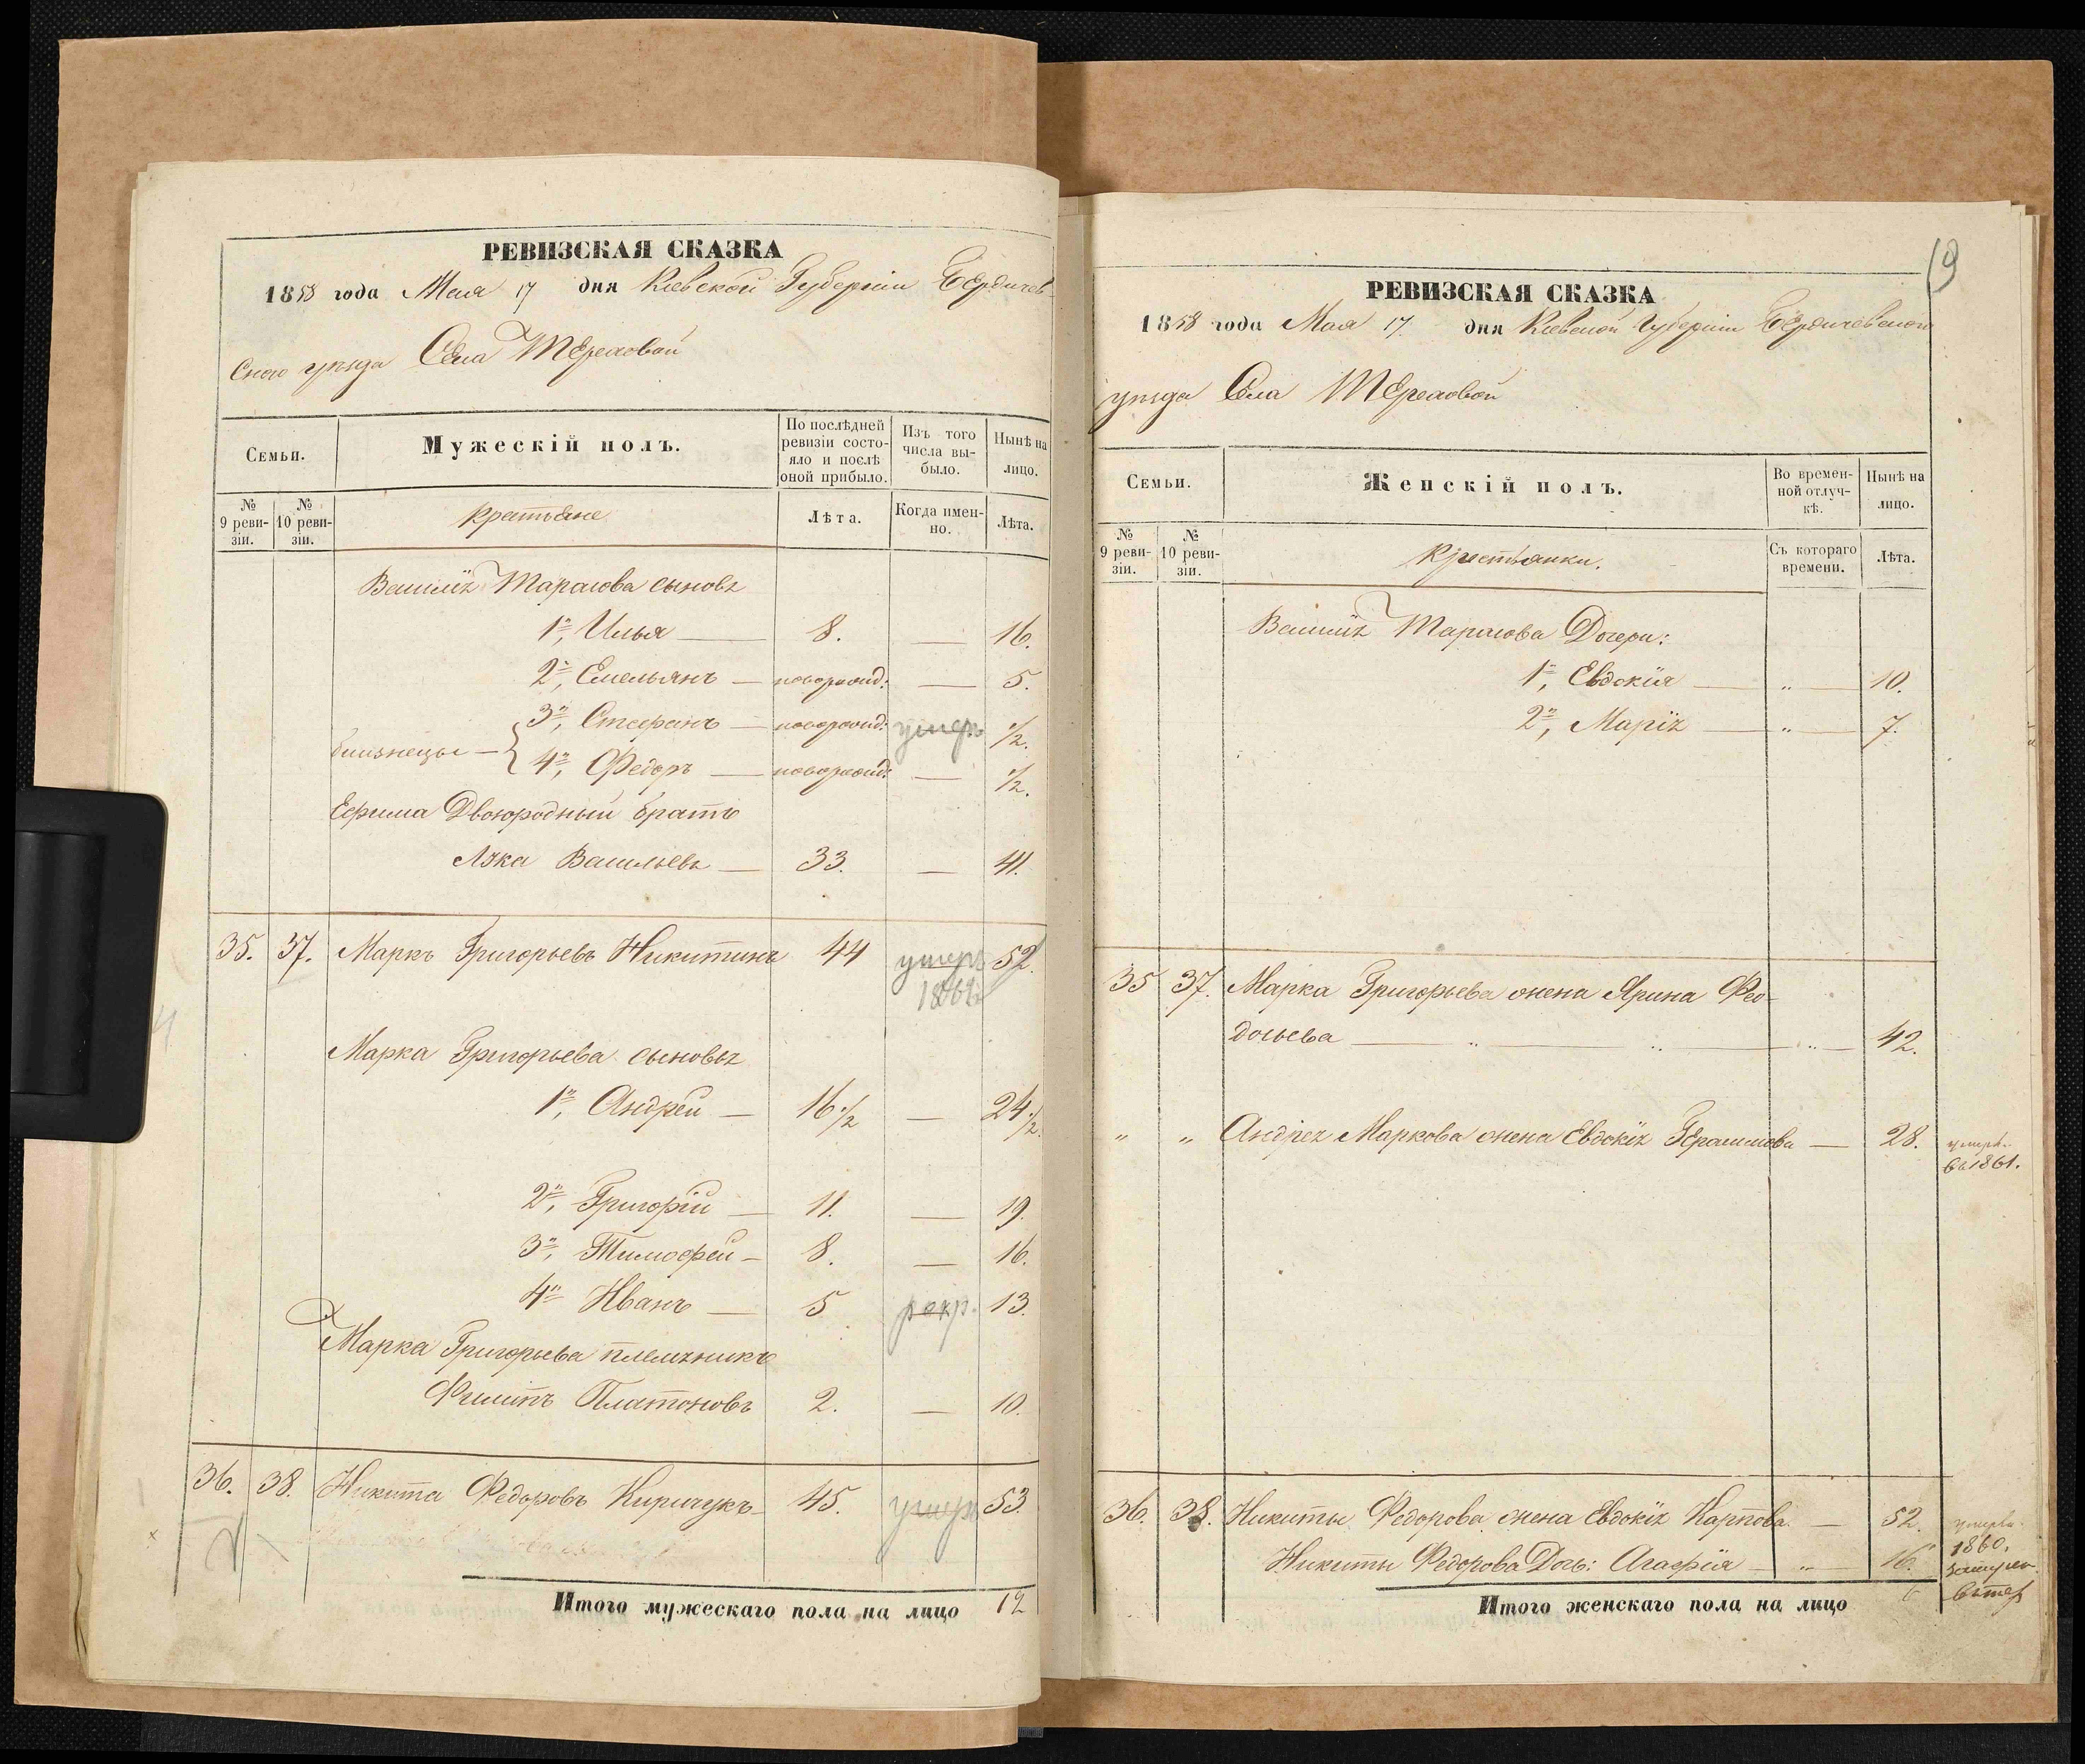 РЕВИЗСКАЯ СКАЗКА
1858 года Мая 17 дня Кіевской Губерніи Бердичев-
скаго уѣзда Села Терховой
Семьи.
Мужескій полъ.
По послѣдней ревизіи состояло и послѣ оной прибыло.
Изъ того числа выбыло.
Нынѣ на лицо.
№ 9 ревизіи.
№ 10 ревизіи.
Крестьяне
Лѣта.
Когда именно.
Лѣта.
Василія Тарасова сыновья
1й, Илья 8. — 16.
2й, Емельянъ — новорожд: — 5.
3й, Стефанъ — новорожд: умеръ 1/2.
близнецы — 4й, Федоръ — новорожд: — 1/2.
Ефима Двоюродный братъ
Лука Васильевъ — 33. — 41.
35. 37. Маркъ Григорьевъ Никитинъ 44 умеръ 52.
Марка Григорьева сыновья
1й, Андрей — 16 1/2 — 24 1/2.
2й, Григорій — 11. — 19.
3й, Тимофей — 8. — 16.
4й Иванъ — 5 рекр. 13.
Марка Григорьева племянникъ
Филипъ Платоновъ 2. — 10.
36. 38. Никита Федоровъ Киричукъ 45. умеръ 53.
Итого мужескаго пола на лицо 12
19
РЕВИЗСКАЯ СКАЗКА
1858 года Мая 17. дня Кіевской Губерніи Бердичевскаго
уѣзда Села Терховой
Семьи.
Женскій полъ.
Во временной отлучкѣ.
Нынѣ на лицо.
№ 9 ревизіи.
№ 10 ревизіи.
Крестьянки.
Съ котораго времени.
Лѣта.
Василія Тарасова Дочери:
1я, Евдокія — „ — 10.
2я, Марія — „ — 7.
35 37. Марка Григорьева жена Ярина Фео-
досьева 42.
„ „ Андрея Маркова жена Евдокія Герасимова — 28. умерла
въ 1861.
36. 38. Никиты Федорова жена Евдокія Карпова. — 52. умерла
1860.
Никиты Федорова Дочь: Агафія — „ — 16.
Итого женскаго пола на лицо 6